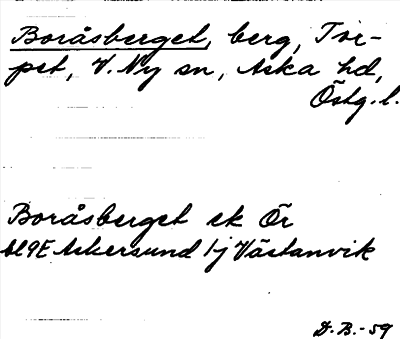 Boråsberget, berg, Tor-
pet, V. Ny sn, Aska hd,
Östg. l.
Boråsberget ek Ör
bl 9E Askersund 1j Västanvik
D. B. -59